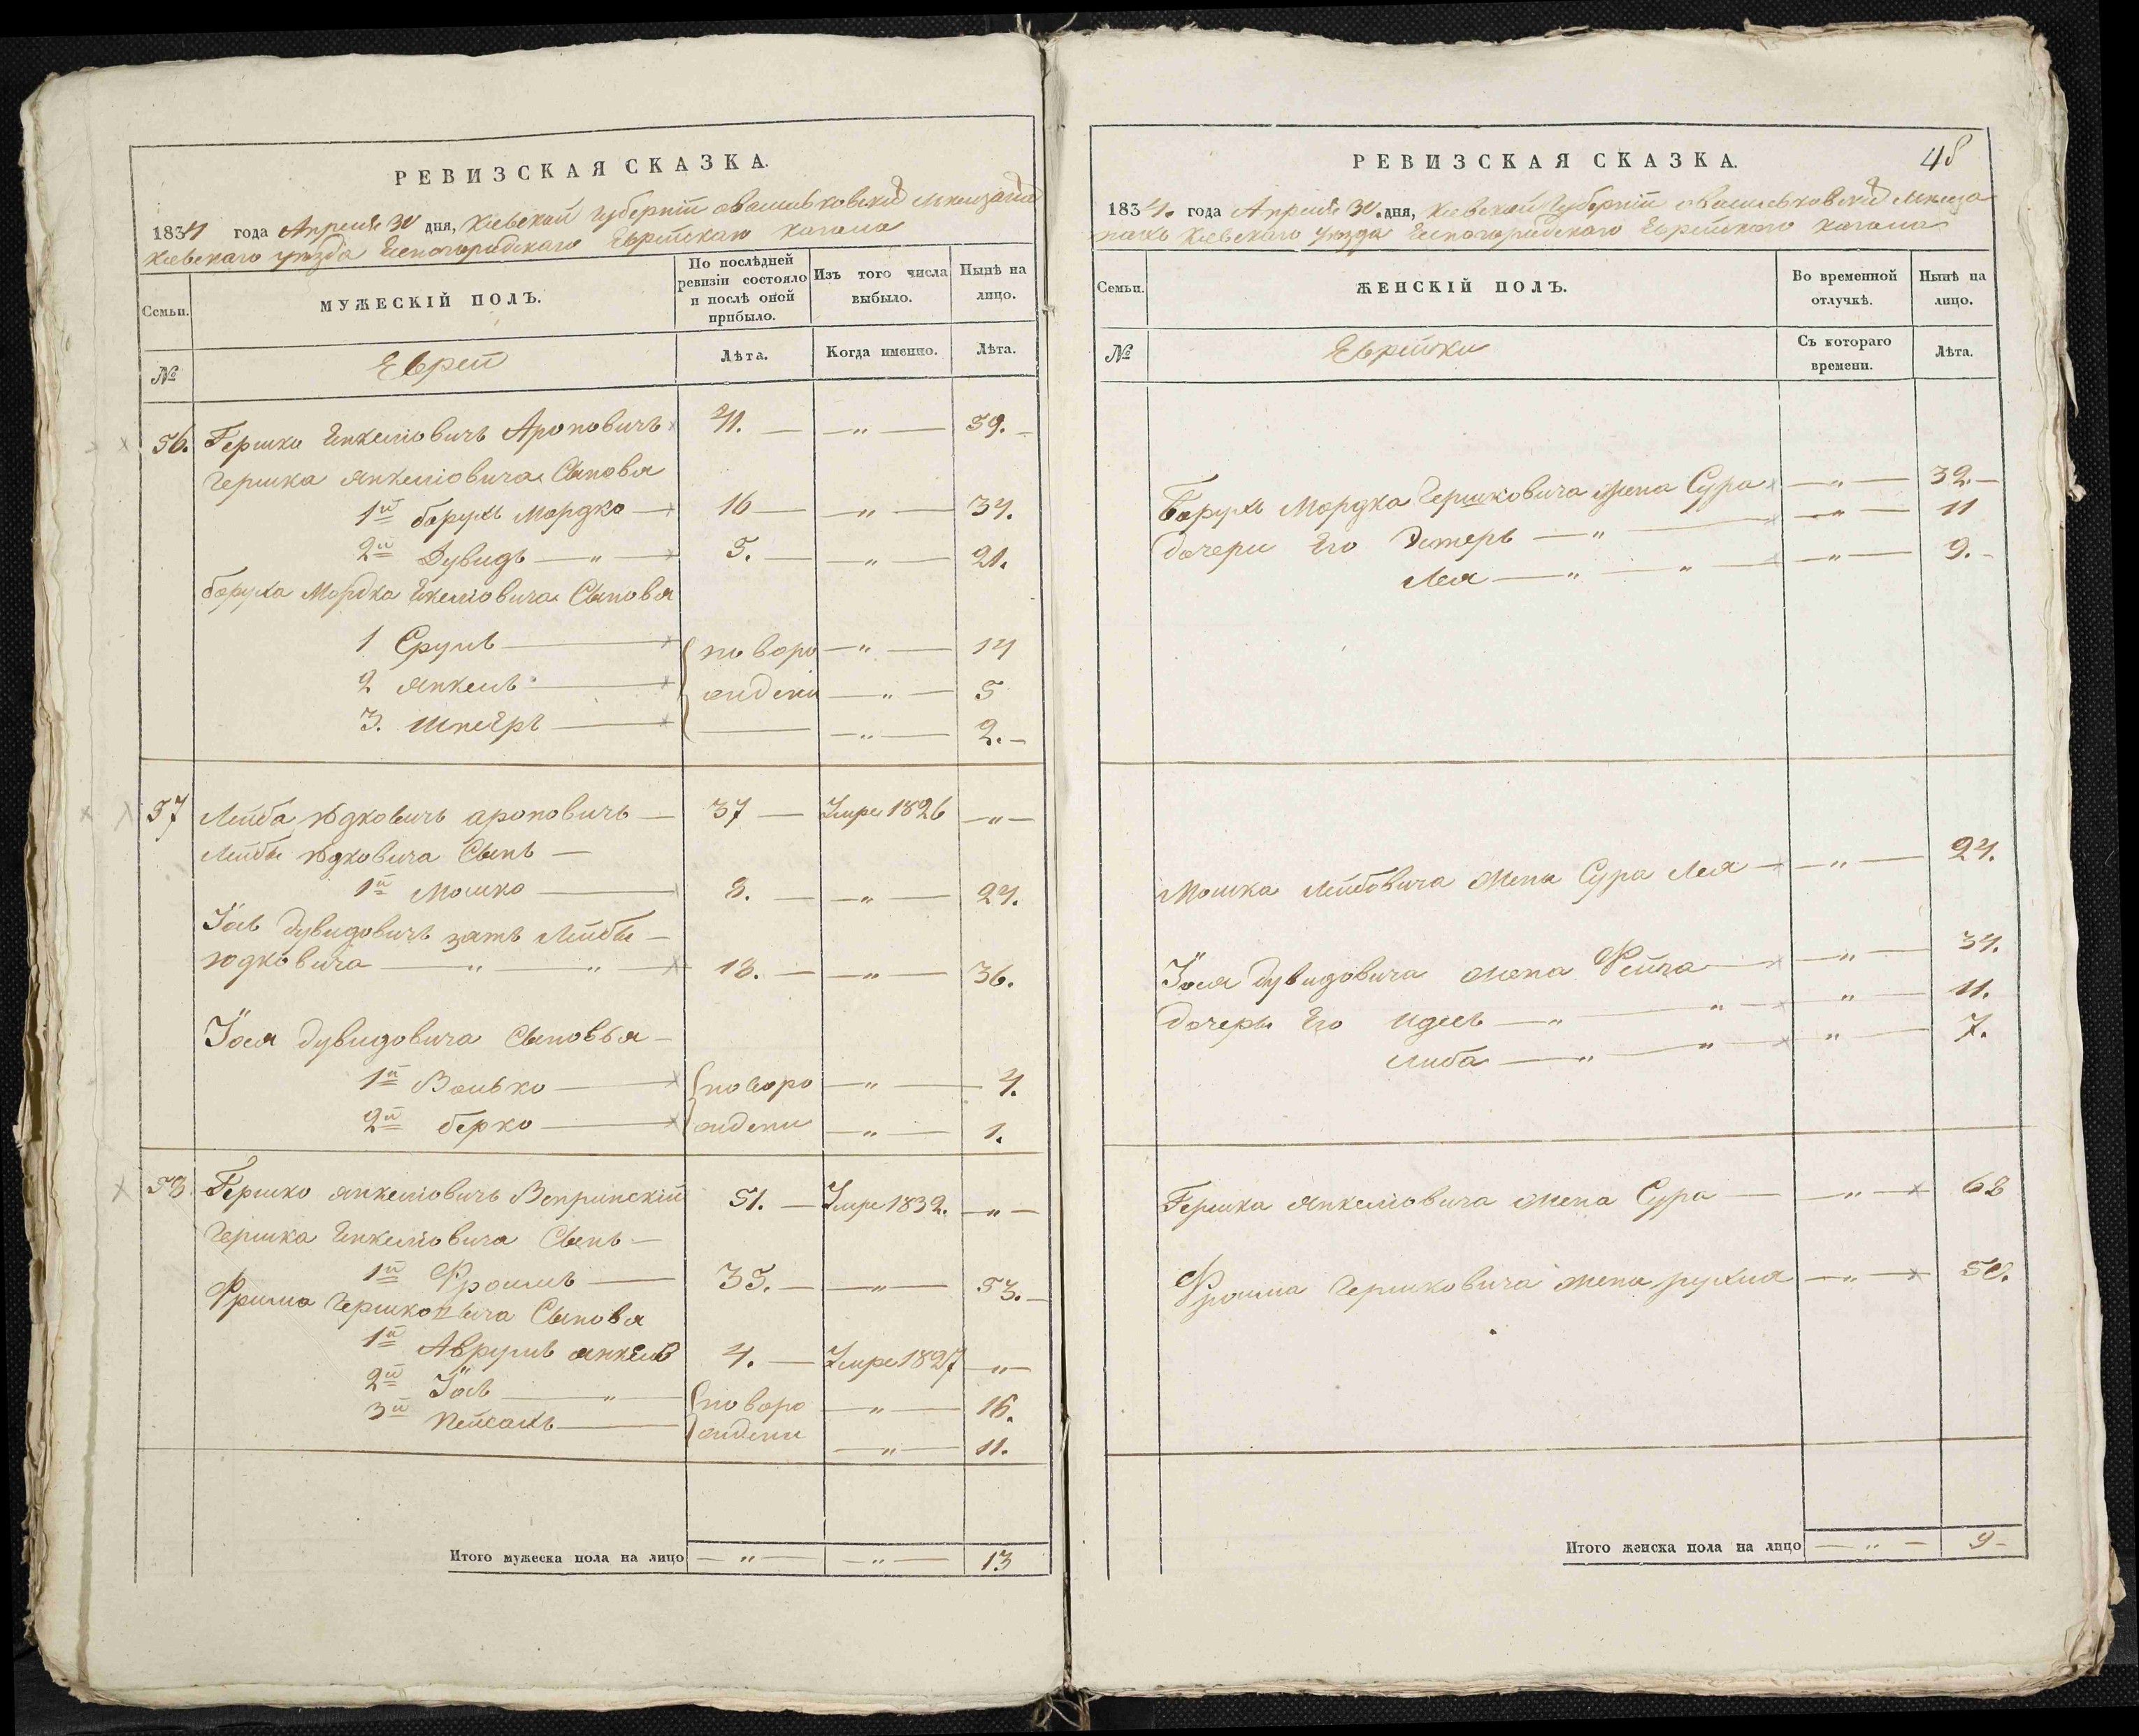 РЕВИЗСКАЯ СКАЗКА.
1834 года Апреля 30 дня, Кіевской Губерніи
Кіевскаго уѣзда Еврейскаго Кагала
Семьи.
МУЖЕСКІЙ ПОЛЪ.
По послѣдней ревизіи состояло и послѣ оной прибыло.
Изъ того числа выбыло.
Нынѣ на лицо.
№
Евреи
Лѣта.
Когда именно.
Лѣта.
56. Гершко Янкеліовичъ Ароновичъ 41. — „ — 39. —
Гершка Янкеліовича Сыновя
1й Борухъ Мордко — 16 — „ — 34.
2й Дувидъ — „ — 5. — „ — 21.
Боруха Мордка Сыновя
1 Сруль — поворо — „ — 14
2 Янкель — ждени — „ — 5
3. — „ — 2. —
57 Лейба Юдковичъ Ароновичъ — 37 — Умре 1826 — „ —
Лейбы Юдковича Сынъ —
1й Мошко — 8. — „ — 24.
Іось Дувидовичъ зять Лейбы —
Юдковича — „ — „ — 18. — „ — 36.
Іося Дувидовича Сыновья —
1й Волько — поворо — „ — 4.
2й Берко — ждени — „ — 1.
58 Гершко Янкеліовичъ Вепринскій 51. — Умре 1832. — „ —
Гершка Янкеліовича Сынъ —
1й Фроимъ — 35. — „ — 53. —
Фроима Гершковича Сыновя
1й Аврумъ Янкель 4. — Умре 1827 — „ —
2й Іось — „ — поворо — „ — 16.
3й Пейсахъ — ждени — „ — 11.
Итого мужеска пола на лицо — „ — — „ — 13
РЕВИЗСКАЯ СКАЗКА.
48
1834. года Апреля 30. дня, Кіевской Губерніи
Кіевскаго уѣзда Еврейскаго Кагала
Семьи.
ЖЕНСКІЙ ПОЛЪ.
Во временной отлучкѣ.
Нынѣ на лицо.
№
Еврейки
Съ котораго времени.
Лѣта.
Борухъ Мордка Гершковича жена Сура — „ — 32. —
Дочери Его Эстеръ — „ — — „ — 11
Лея — „ — „ — — „ — 9. —
Мошка Лейбовича жена Сура Лея — „ — 24.
Іося Дувидовича жена Фейга — „ — 34.
Дочеры Его Идесь — „ — „ — „ — 11.
Либа — „ — „ — „ — 7.
Гершка Янкеліовича жена Сура — „ — 68
Фроима Гершковича жена Рухля — „ — 50.
Итого женска пола на лицо — „ — 9 —